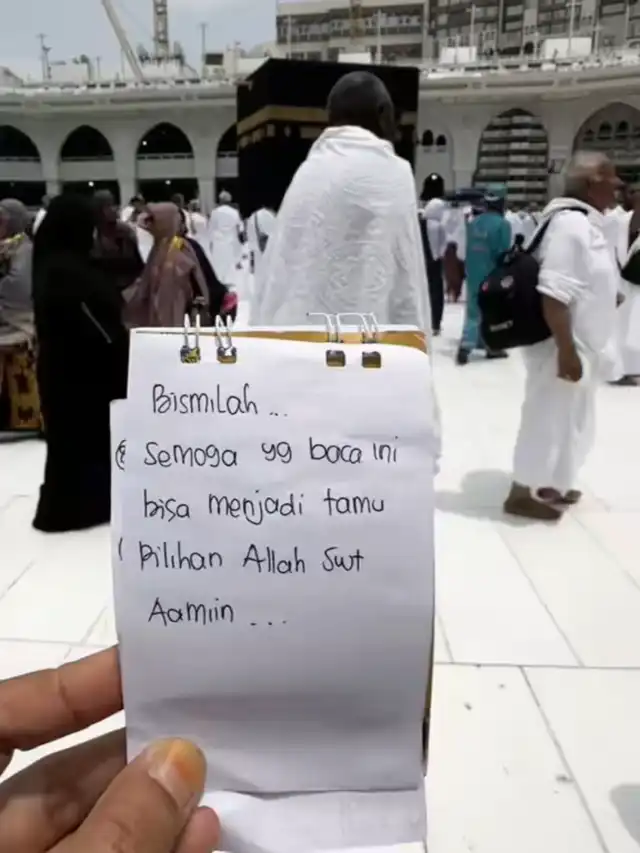 Bismilah ...
Semoga yg baca ini
bisa menjadi tamu
Pilihan Allah Swt
Aamiin ...